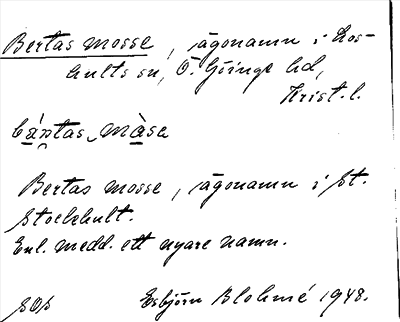 Bertas mosse, ägonamn i Los-
hults sn, Ö. Göinge hd,
Krist. l.
Bertas mosse, ägonamn i St.
Stockhult.
Enl. medd. ett nyare namn.
Esbjörn Blohmé 1948.